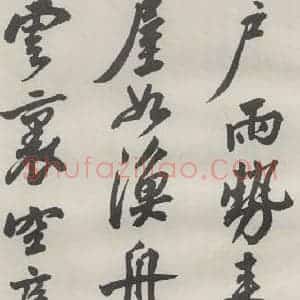 户雨勢来
屋如漁舟
雲裏空庖
shufaziliao.com